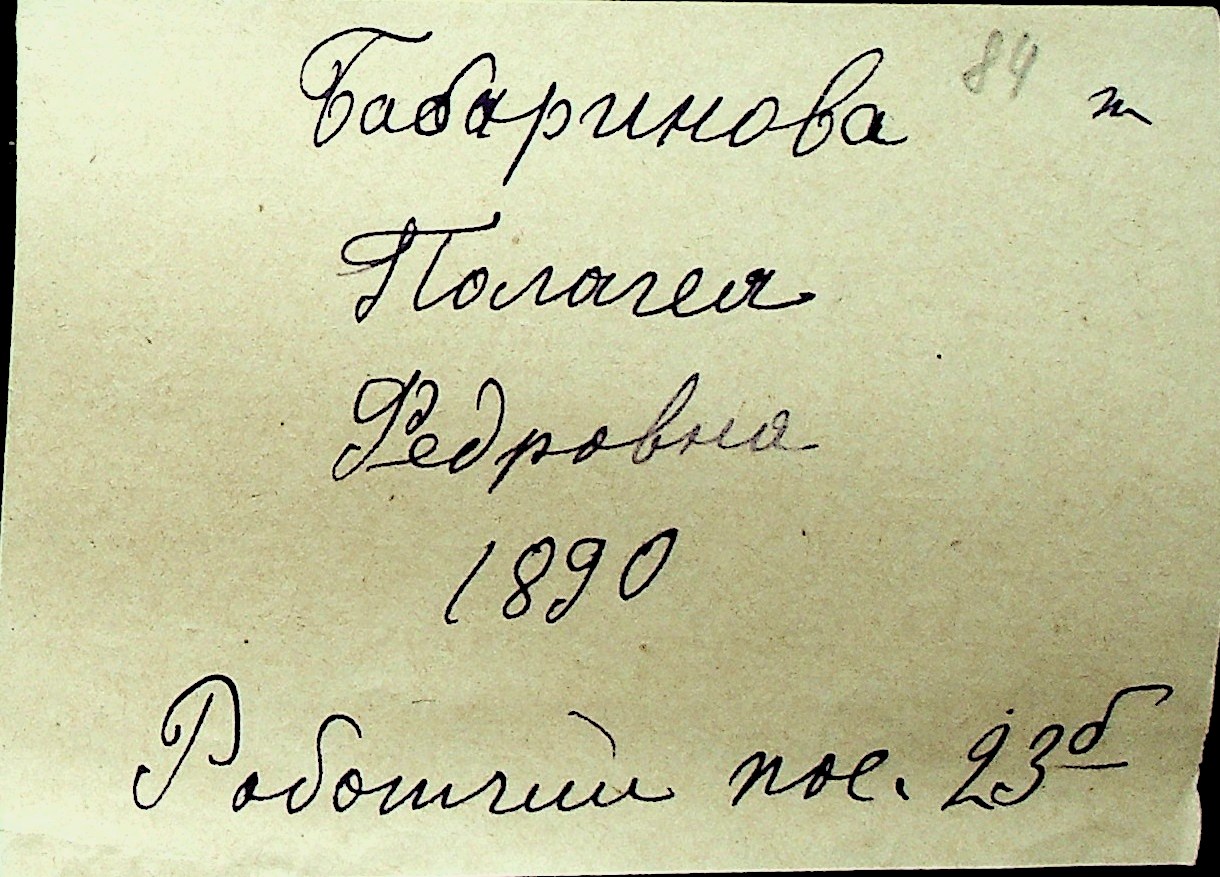 Бабаринова 84 ж
Полагея
Федровна
1890
Работчий пос. 23б